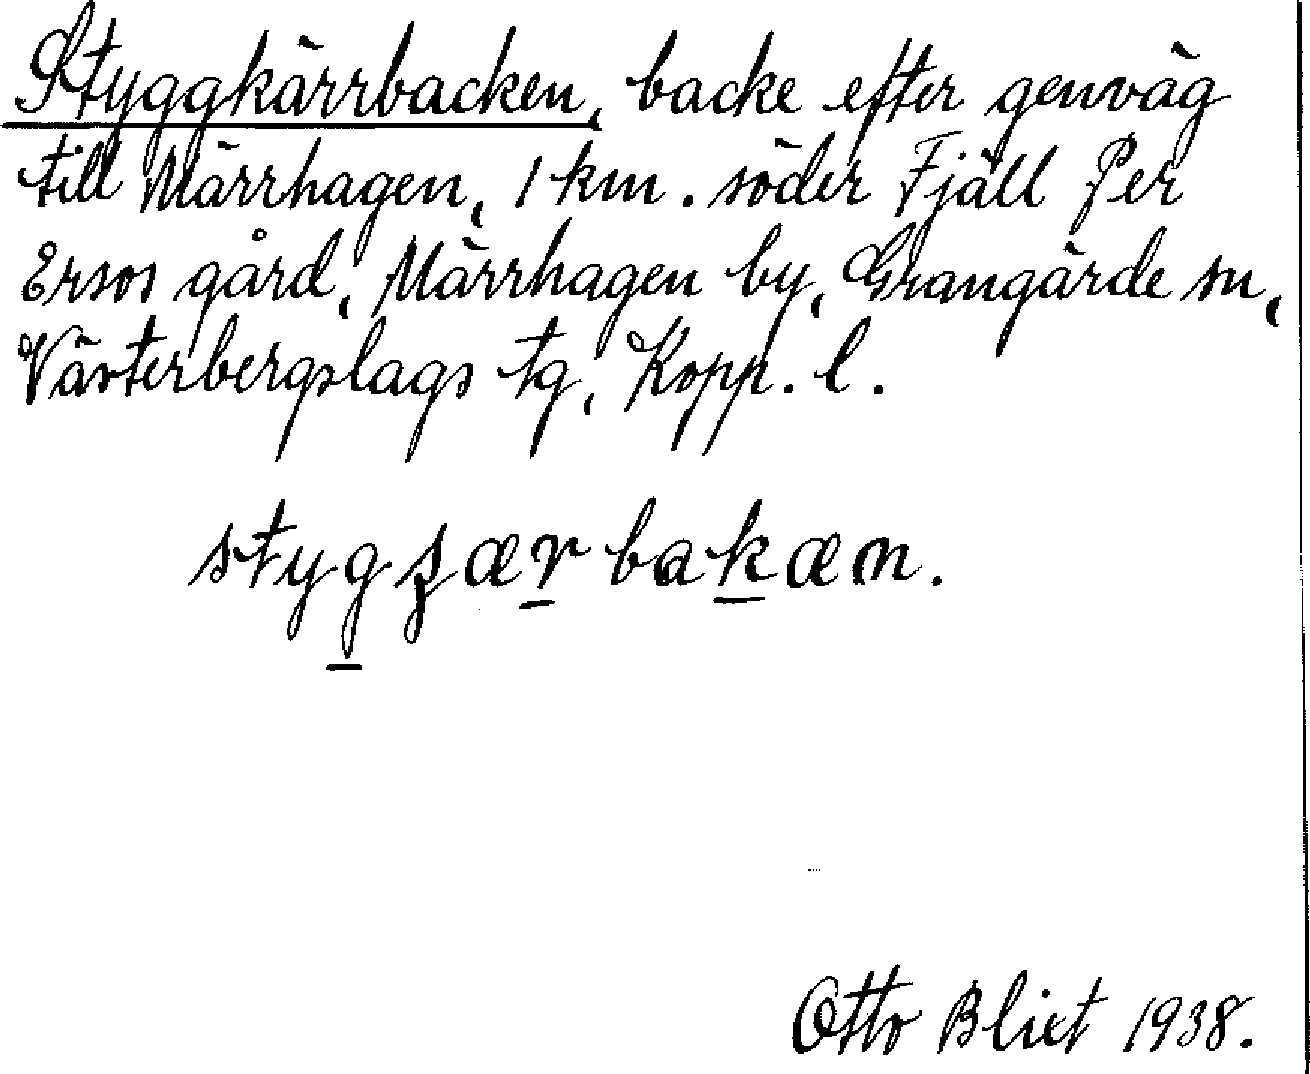 Styggkärrbacken, backe efter genväg
till Märrhagen, 1 km. söder Fjäll Per
Ersos gård, Märrhagen by, Grangärde sn,
Västerbergslags tg, Kopp. l.
stygʂærbakæn.
Otto Blixt 1938.